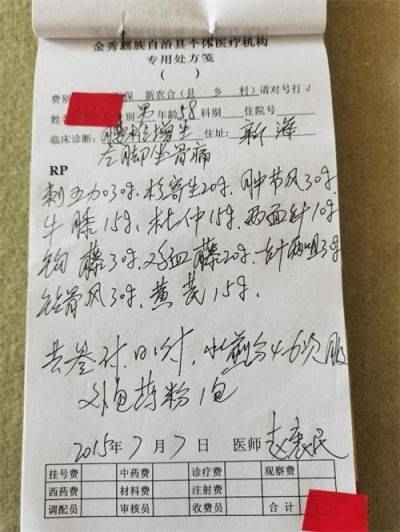 金秀瑶族自治县个体医疗机构
专用处方笺
( )
费别 保 新农合(县 乡 村)请对号打√
姓 别 男 年龄 58 科别 住院号
临床诊断: 腰椎增生 住址: 新
左脚坐骨痛
RP
刺五加30g、杜寄生20g、肿节风30g、
牛膝15g、杜仲15g、两面针10g
钩藤30g、鸡血藤20g、
风30g、黄芪15g、
共叁付、日1付、水煎分4-6次服
外包药粉1包
2015年7月7日 医师
挂号费 中药费 诊疗费 观察费
西药费 材料费 注射费
调配员 审核员 收费员 合计